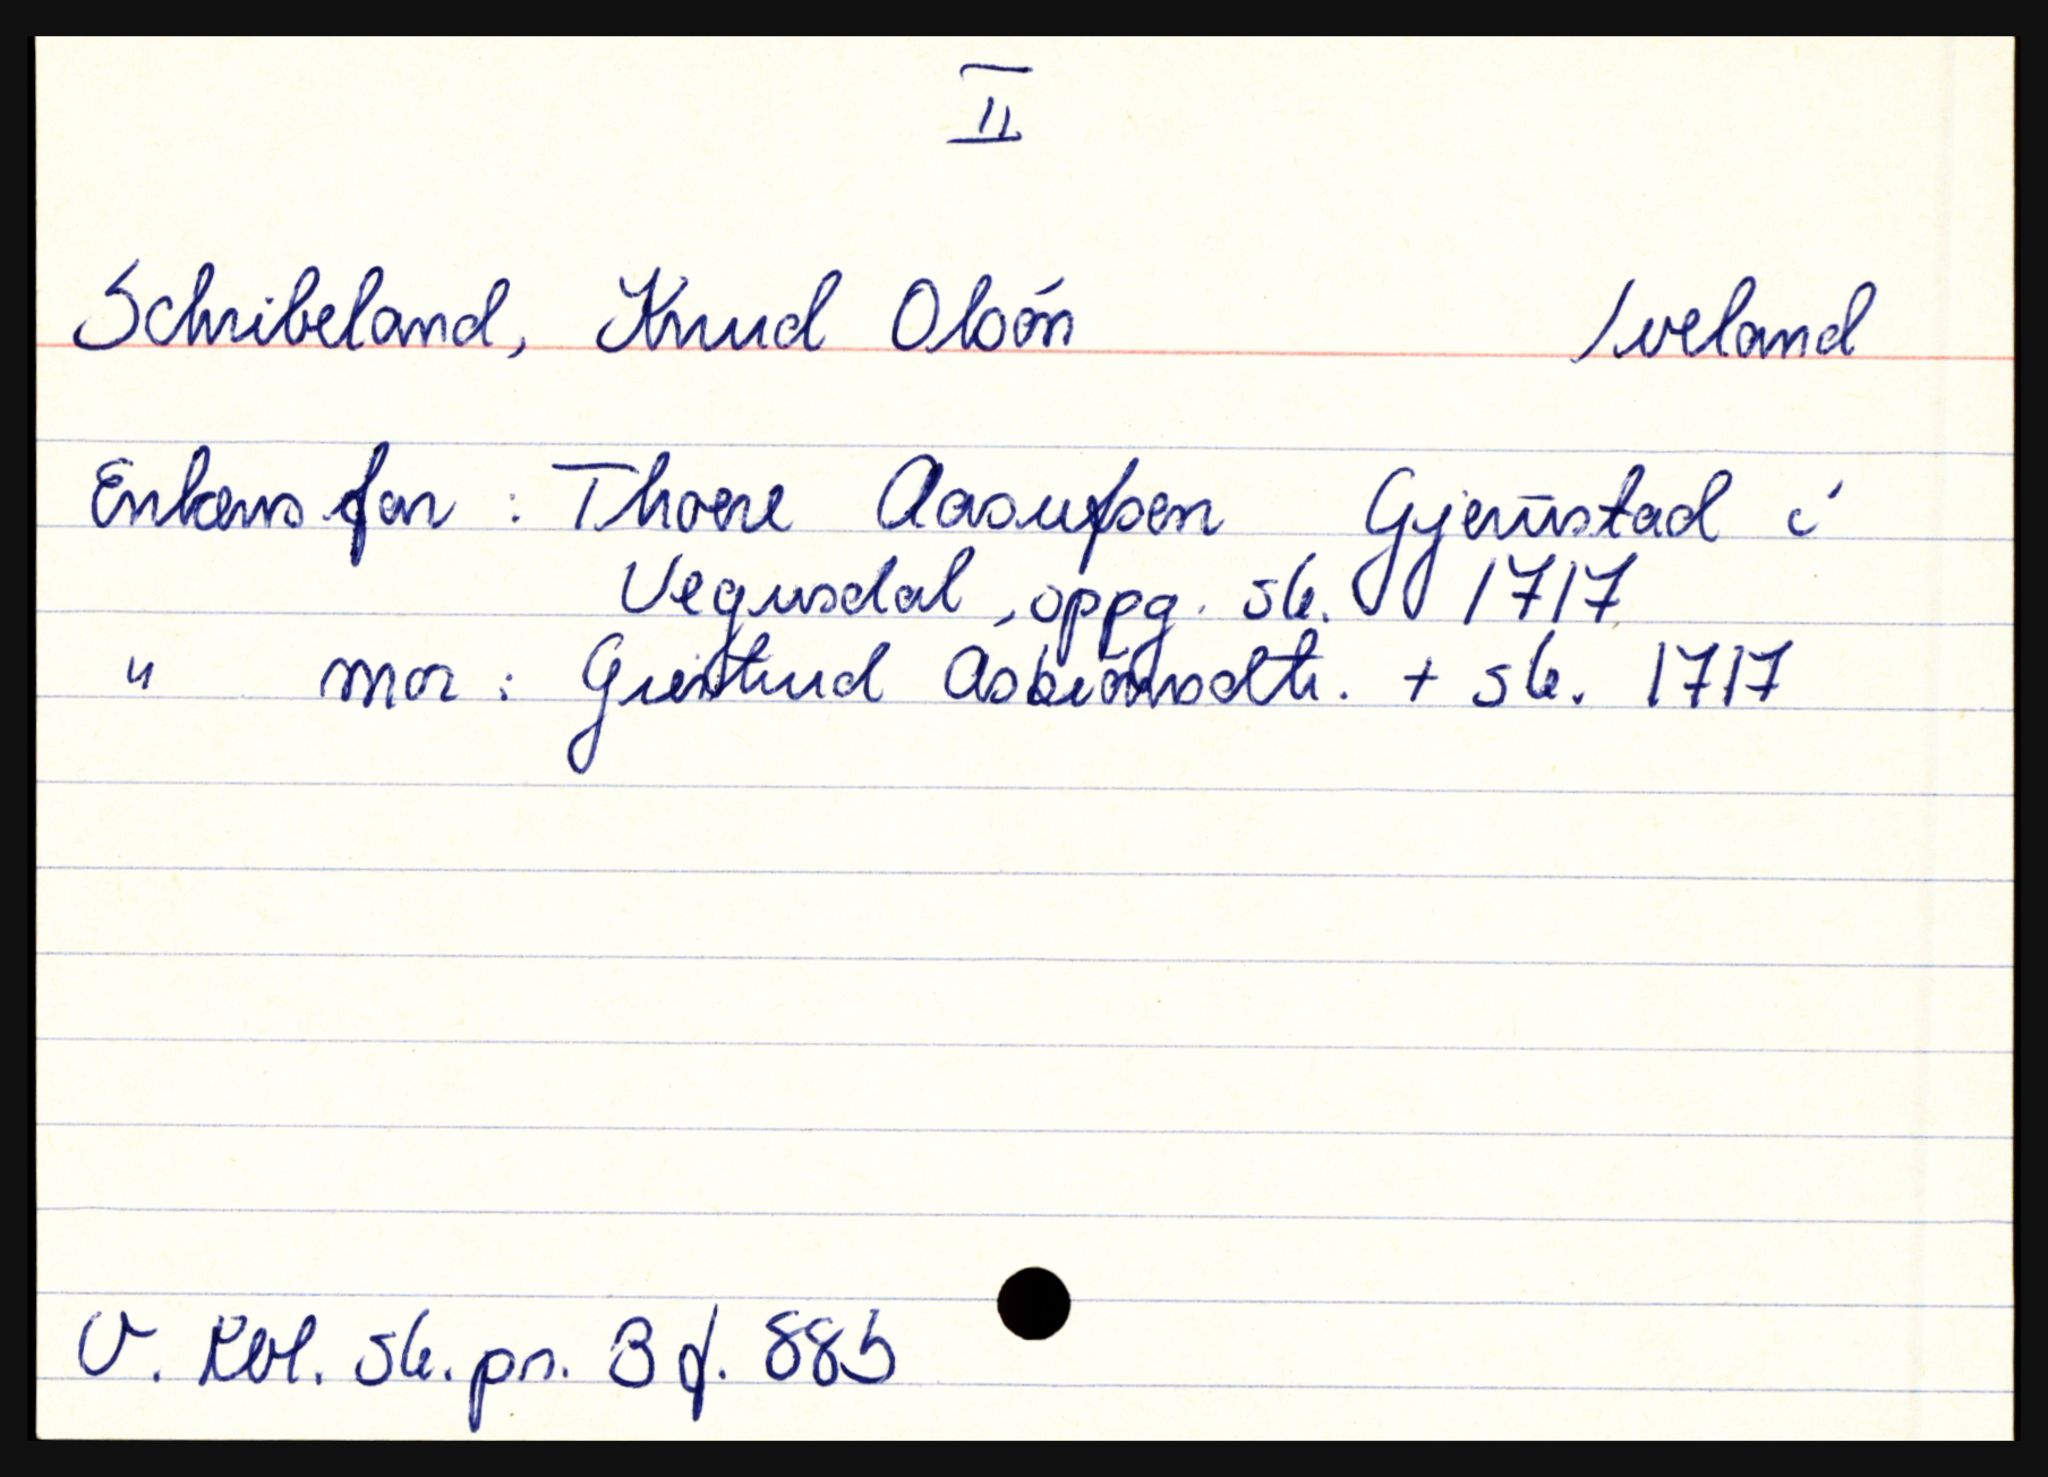 II
Schribeland, Knud Olsön Iveland
Enkens far : Thore Aasulfsen Gjerustad i
Vegusdal, oppg. sk. 1717
" mor : Giertrud Asbiörnsdtr. + sk. 1717
V. Rbl. sk. pr. 3 f. 883